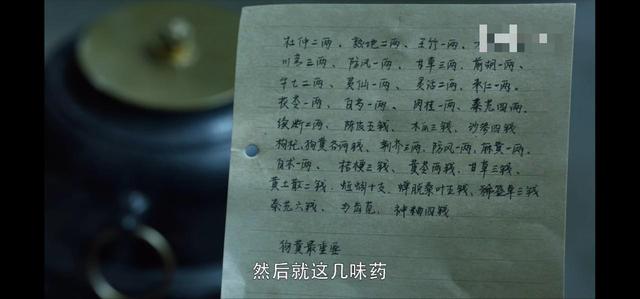 杜仲二两、熟地二两、玉竹一两、
川弓三两、防风一两、甘草三两、前胡一两、
牛七二两、灵仙一两、灵活二两、枣仁一两。
茯苓一两、白芍一两、肉桂一两、秦艽四两、
续断二两、陈皮五钱、木瓜三钱、沙参四钱
枸杞,狗黄各两钱、荆芥三两,防风一两、麻黄一两、
白术一两、桔梗三钱、黄芩两钱,甘草三钱、
黄土散二钱、蜈蚣十支、蝉脱桑叶五钱、稀莶草三钱
秦艽六钱、马齿苋、神曲四钱
狗黄最重要
然后就这几味药